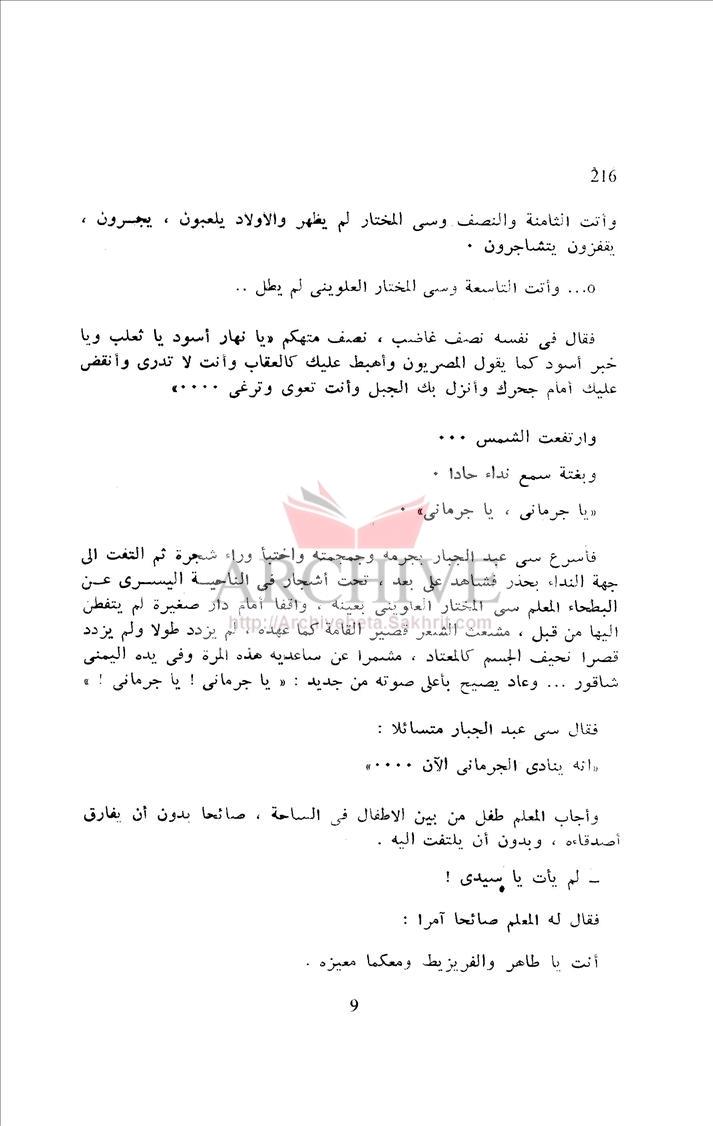 216
وأتت الثامنة والنصف وسى المختار لم يظهر والاولاد يلعبون ، يجـــرون ،
يقفزون يتشاجرون ٠
٥... وأتت التاسعة وسى المختار العلوينى لم يطل ..
فقال فى نفسه نصف غاضب ، نصف متهكم «يا نهار أسود يا ثعلب ويا
خبر أسود كما يقول المصريون وأهبط عليك كالعقاب وأنت لا تدرى وأنقض
عليك أمام جحرك وأنزل بك الجبل وأنت تعوى وترغى ٠٠٠٠»
وارتفعت الشمس ٠٠٠
وبغتة سمع نداء حادا ٠
«يا جرمانى ، يا جرمانى» ٠
فأسرع سى عبد الجبار بجرمه وجمجمته واختبأ وراء شجرة ثم التفت الى
جهة النداء بحذر فشاهد على بعد ، تحت أشجار فى الناحيــة اليســرى عــن
البطحاء المعلم سى المختار العلوينى بعينه ، واقفا أمام دار صغيرة لم يتفطن
اليها من قبل ، مشعث الشعر قصير القامة كما عهده ، لم يزدد طولا ولم يزدد
قصرا نحيف الجسم كالمعتاد ، مشمرا عن ساعديه هذه المرة وفى يده اليمنى
شاقور ... وعاد يصيح بأعلى صوته من جديد : « يا جرمانى ! يا جرمانى ! »
فقال سى عبد الجبار متسائلا :
«انه ينادى الجرمانى الآن ٠٠٠٠»
وأجاب المعلم طفل من بين الاطفال فى الساحة ، صائحا بدون أن يفارق
أصدقاءه ، وبدون أن يلتفت اليه .
ــ لم يأت يا سيدى !
فقال له المعلم صائحا آمرا :
أنت يا طاهر والفريزيط ومعكما معيزه .
9
ARCHIVE
http://Archivebeta.Sakhrit.com